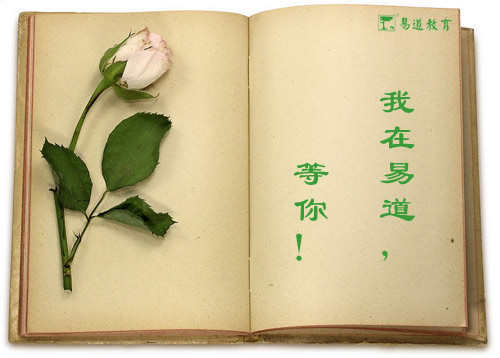 易道教育
我在易道，
等你！